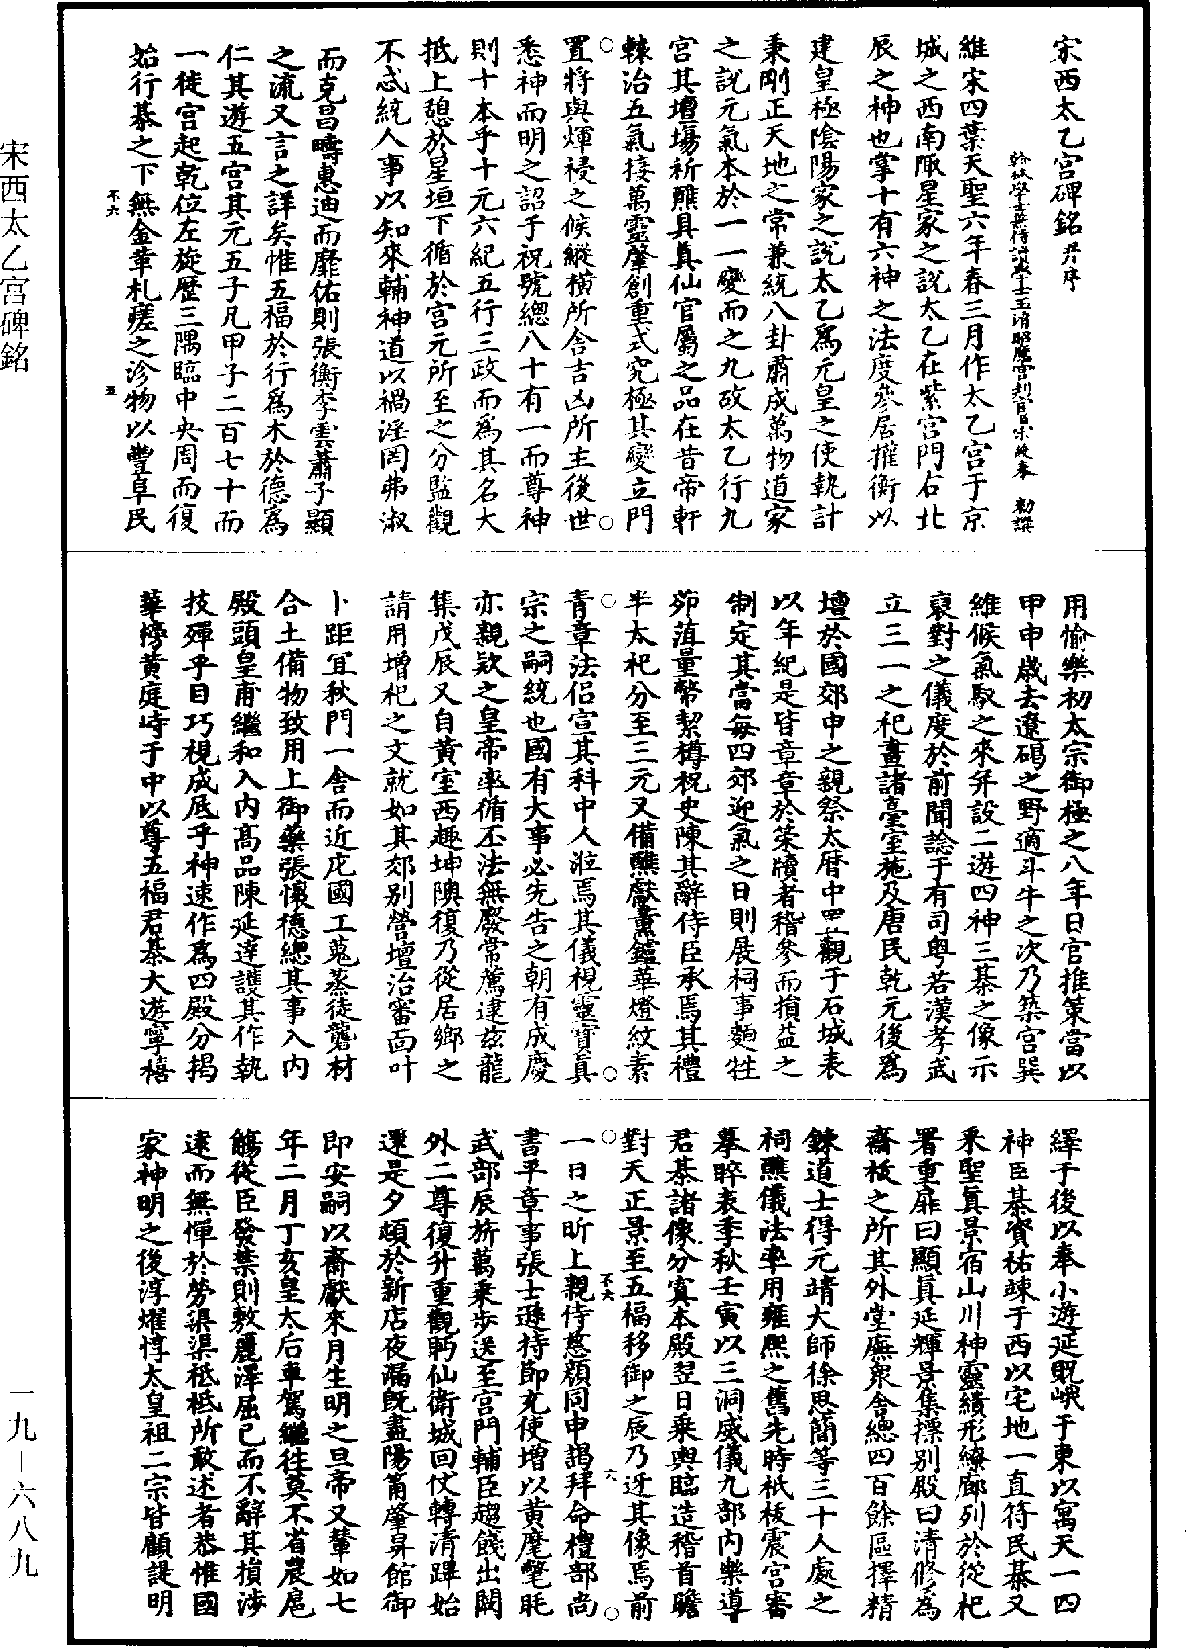 宋西太乙宮碑銘并序
翰林學士兼侍講學士玉清昭應宮判官臣宋綬奉 勅撰
維宋四葉天聖六年春三月作太乙宮于京
城之西南陬星家之說太乙在紫宮門右北
辰之神也掌十有六神之法度參居攉衡以
建皇極陰陽家之說太乙爲元皇之使執計
秉剛正天地之常兼統八卦肅成萬物道家
之說元氣本於一一變而之九故太乙行九
宮其壇場祈醮具真仙官屬之品在昔帝軒
轅治五氣接萬靈肇創重式究極其變立門
置將與煇祲之候縱橫所舍吉凶所主後世
悉神而明之詔于祝號總八十有一而尊神
則十本乎十元六紀五行三政而爲其名大
抵上憩於星垣下循於宮元所至之分監觀
不忒統人事以知來輔神道以禍淫罔弗淑
而克昌疇惠迪而靡佑則張衡李雲蕭子顯
之流又言之詳矣惟五福於行爲木於德爲
仁其遊五宮其元五子凡甲子二百七十而
一徙宮起乾位左旋歷三隅臨中央周而復
始行棊之下無金革札瘥之沴物以豐阜民
用愉樂初太宗御極之八年日官推策當以
甲申歲去遼碣之野適斗牛之次乃築宮巽
維候氣馭之來并設二遊四神三棊之像示
裒對之儀度於前聞諗于有司粵若漢孝武
立三一之祀畫諸臺室施及唐民乾元後爲
壇於國郊申之親祭太曆中罡觀于石城表
以年紀是皆章章於榮牘者稽參而損益之
制定其當每四郊迎氣之日則展祠事麵牲
茆菹量幣絜樽祝史陳其辭侍臣承焉其禮
半太祀分至三元又備醮獻薰鑪華燈紋素
青章法侶宣其科中人涖焉其儀視靈寶真
宗之嗣統也國有大事必先告之朝有成慶
亦親欵之皇帝率循丕法無廢常薦逮玆龍
集戊辰又自黃室西趣坤隩復乃從居鄉之
請用增祀之文就如其郊別營壇治審面叶
卜距宜秋門一舍而近庀國工蒐蒸徒礱材
合土備物致用上御藥張懷德總其事入內
殿頭皇甫繼和入內高品陳延達護其作執
技殫乎目巧視成厎乎神速作爲四殿分揭
華牓黃庭峙于中以尊五福君棊大遊寧禧
繹于後以奉小遊延貺峨于東以寓天一四
神臣棊資祐竦于西以宅地一直符民棊又
采聖真景宿山川神靈繢形繚廊列於從祀
署重扉曰顯真延輝景集摽別殿曰清修爲
齋祓之所其外堂廡衆舍總四百餘區擇精
鍊道士得元靖大師徐思簡等三十人處之
祠醮儀法率用雍熙之舊先時祇祓震宮審
摹睟表季秋壬寅以三洞威儀九部內樂導
君棊諸像分寘本殿翌日乘輿臨造稽首瞻
對天正景至五福移御之辰乃迓其像焉前
一日之昕上親侍慈顔同申謁拜命禮部尚
書平章事張士遜持節充使增以黃麾氅眊
武部辰旂萬乘步送至宮門輔臣趨餞出闕
外二尊復升重觀眄仙衛城回仗轉清蹕始
還是夕頓於新店夜漏旣盡陽甯肇昇館御
即安嗣以齋獻來月生明之旦帝又輦如七
年二月丁亥皇太后車駕繼往莫不省農扈
觴從臣發棊則敷麗澤屈已而不辭其損涉
遠而無憚於勞渠渠祗祗所敢述者恭惟國
家神明之後淳燿惇太皇祖二宗皆顧諟明
宋西太乙宮碑銘
一九－六八九